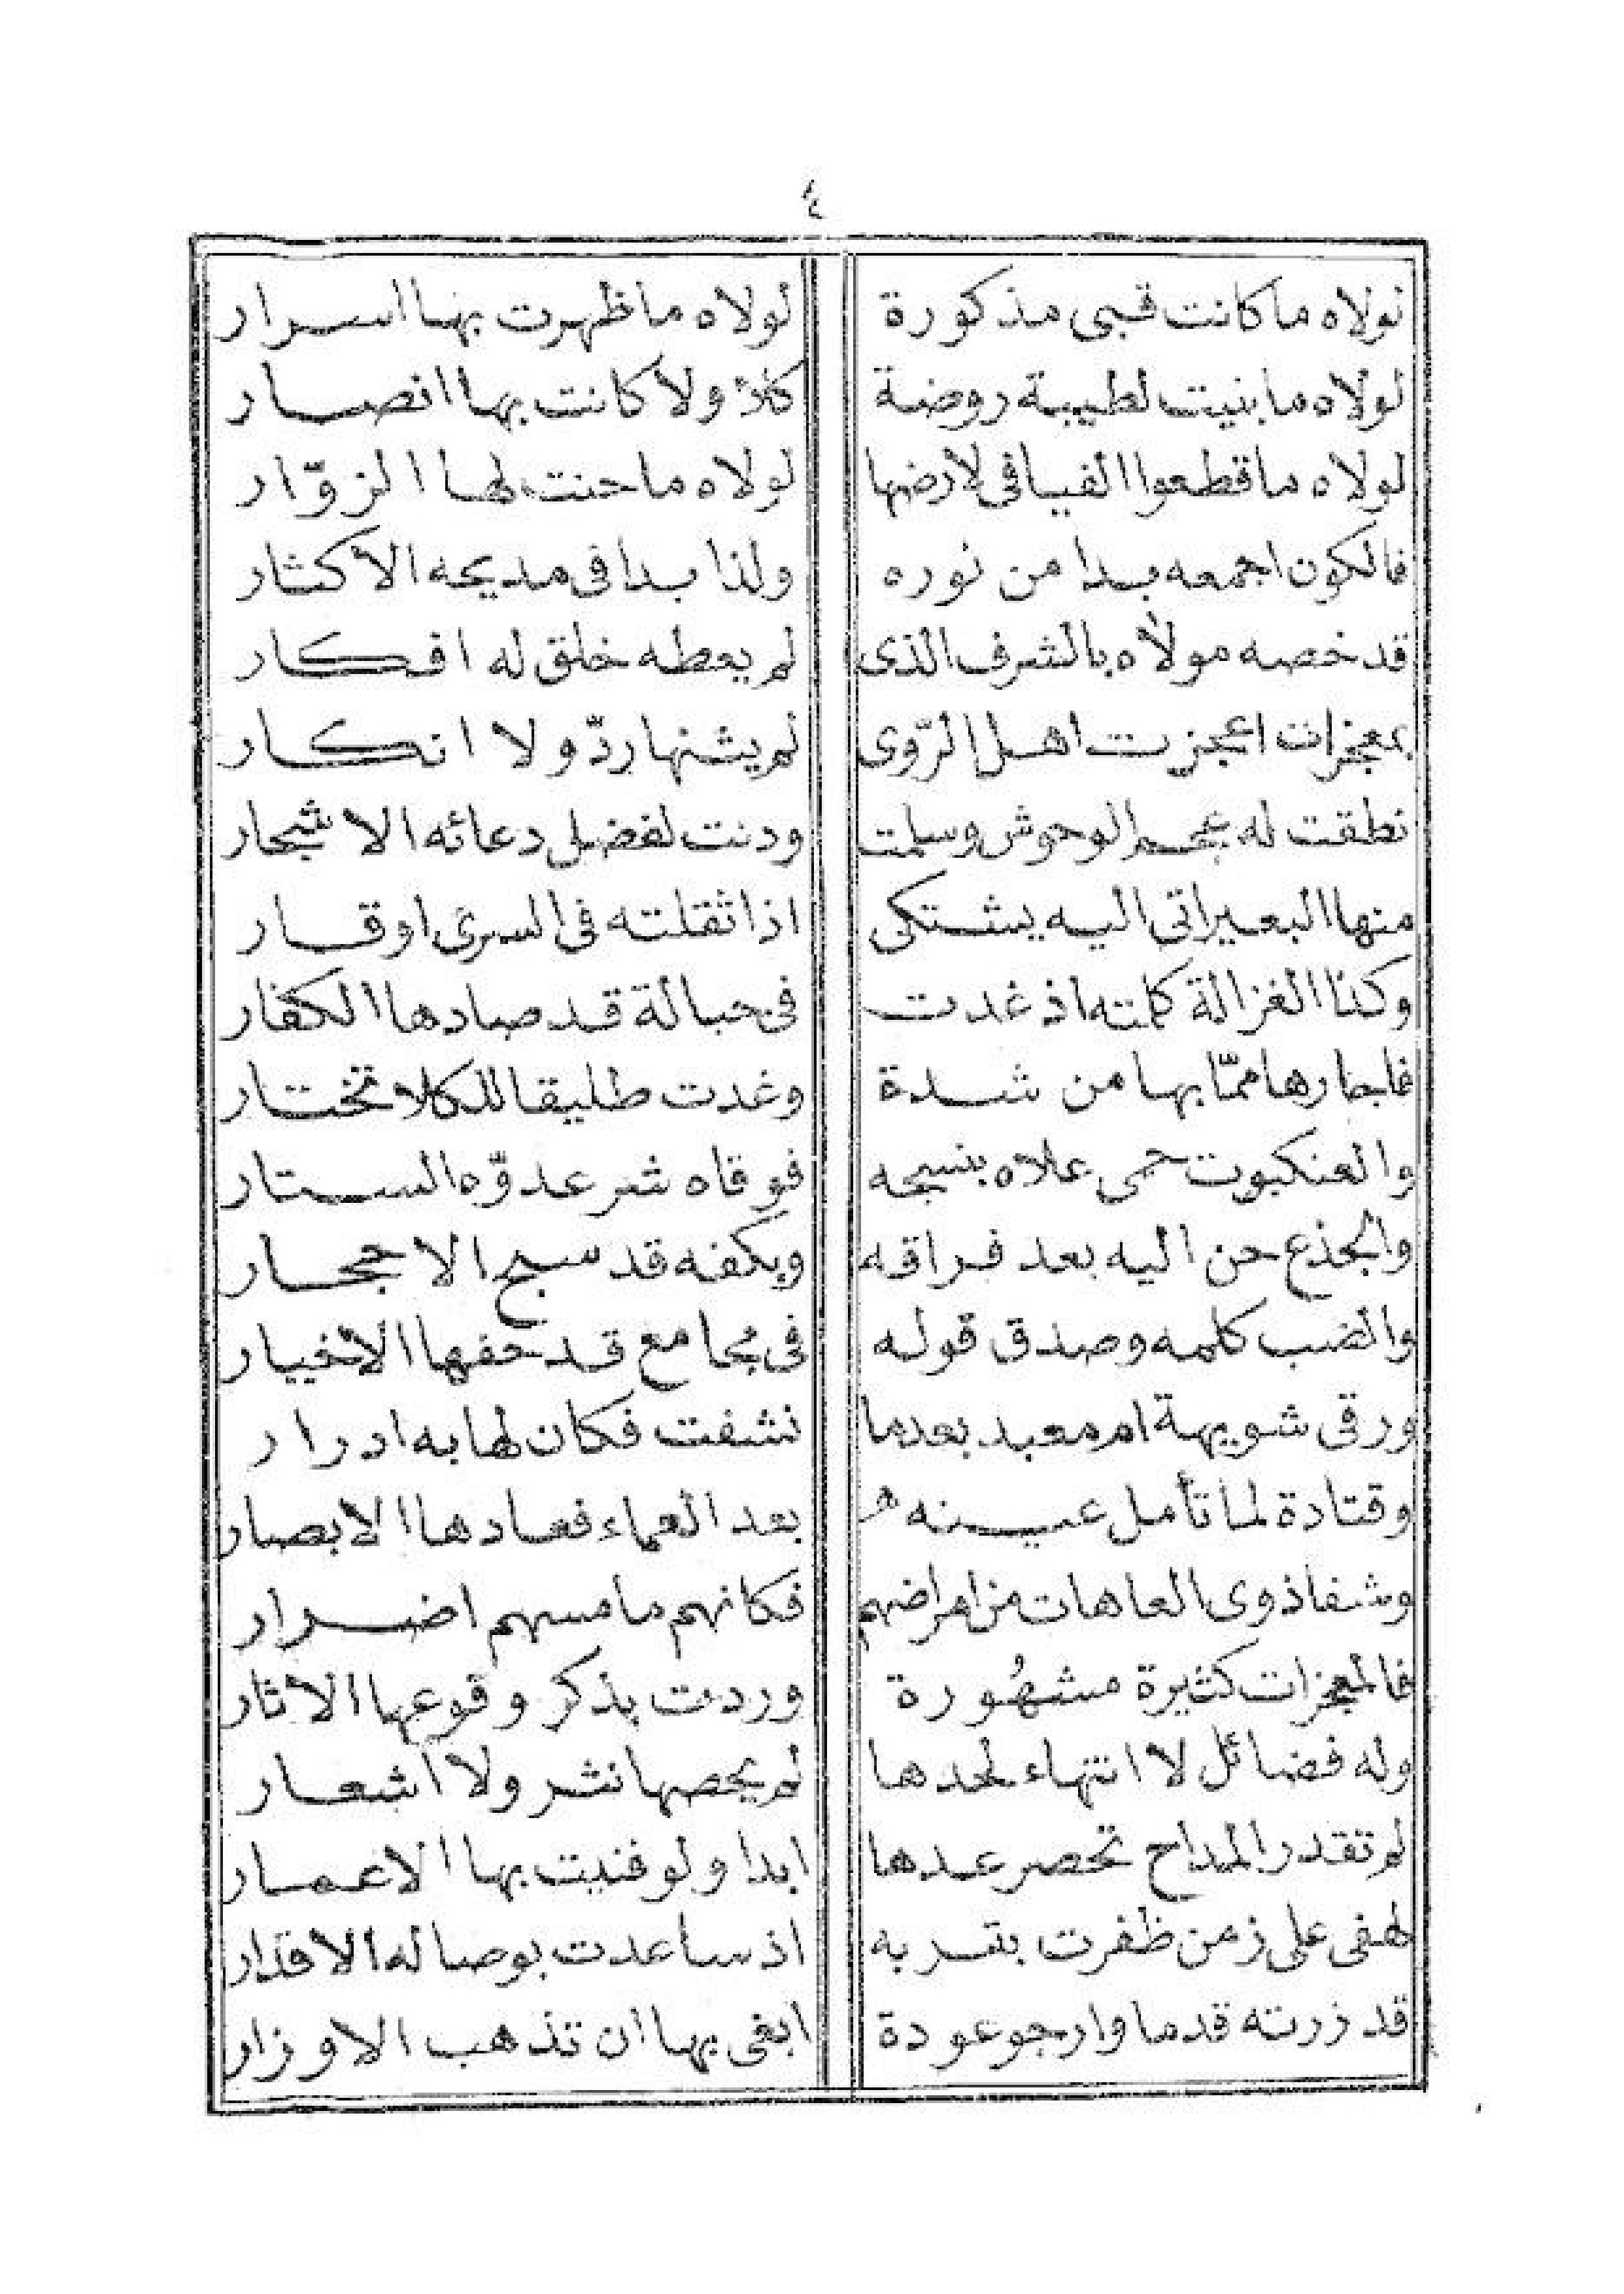 ٤
لولاه ما كانت قبى مذكورة لولاه ما ظهرت بها اسرار
لولاه ما بنيت لطيبة روضة كلا ولا كانت بها انصار
لولاه ما قطعوا الفيافى لارضها لولاه ما حنت لها الزوّار
فالكون اجمعه بدا من نوره ولذا بدا فى مديحه الأكثار
قد خصه مولاه بالشرف الذى لم يعطه خلق له افكار
بمعجزات اعجزت اهل الرّوى لم يشنها ردّ ولا انكار
نطقت له عجم الوحوش وسلمت ودنت لفضل دعائه الاشجار
منها البعير اتى اليه يشتكى اذا ثقلته فى السرى اوقار
وكذا الغزالة كلمته اذ غدت فى حبالة قد صادها الكفار
فاجارها ممّا بها من شدة وغدت طليقا للكلا تختار
والعنكبوت حمى علاه بنسجه فوقاه شر عدوّه الستار
والجذع حن اليه بعد فراقه وبكفه قد سبح الاحجار
والضب كلمه وصدق قوله فى مجامع قد حفها الاخيار
ورقى شويهة ام معبد بعدما نشفت فكان لها به ادرار
وقتادة لما تأمل عينه بعد العماء فعادها الابصار
وشفا ذوى العاهات من امراضهم فكانهم ما مسهم اضرار
فالمعجزات كثيرة مشهُورة وردت بذكر وقوعها الاثار
وله فضائل لا انتهاء لحدها لم يحصها نثر ولا اشعار
لم تقدر المداح تحصر عدها ابدا ولو فنيت بها الاعمار
لهفى على زمن ظفرت بقربه اذ ساعدت بوصاله الاقدار
قد زرته قدما وارجو عودة ابغى بها ان تذهب الاوزار